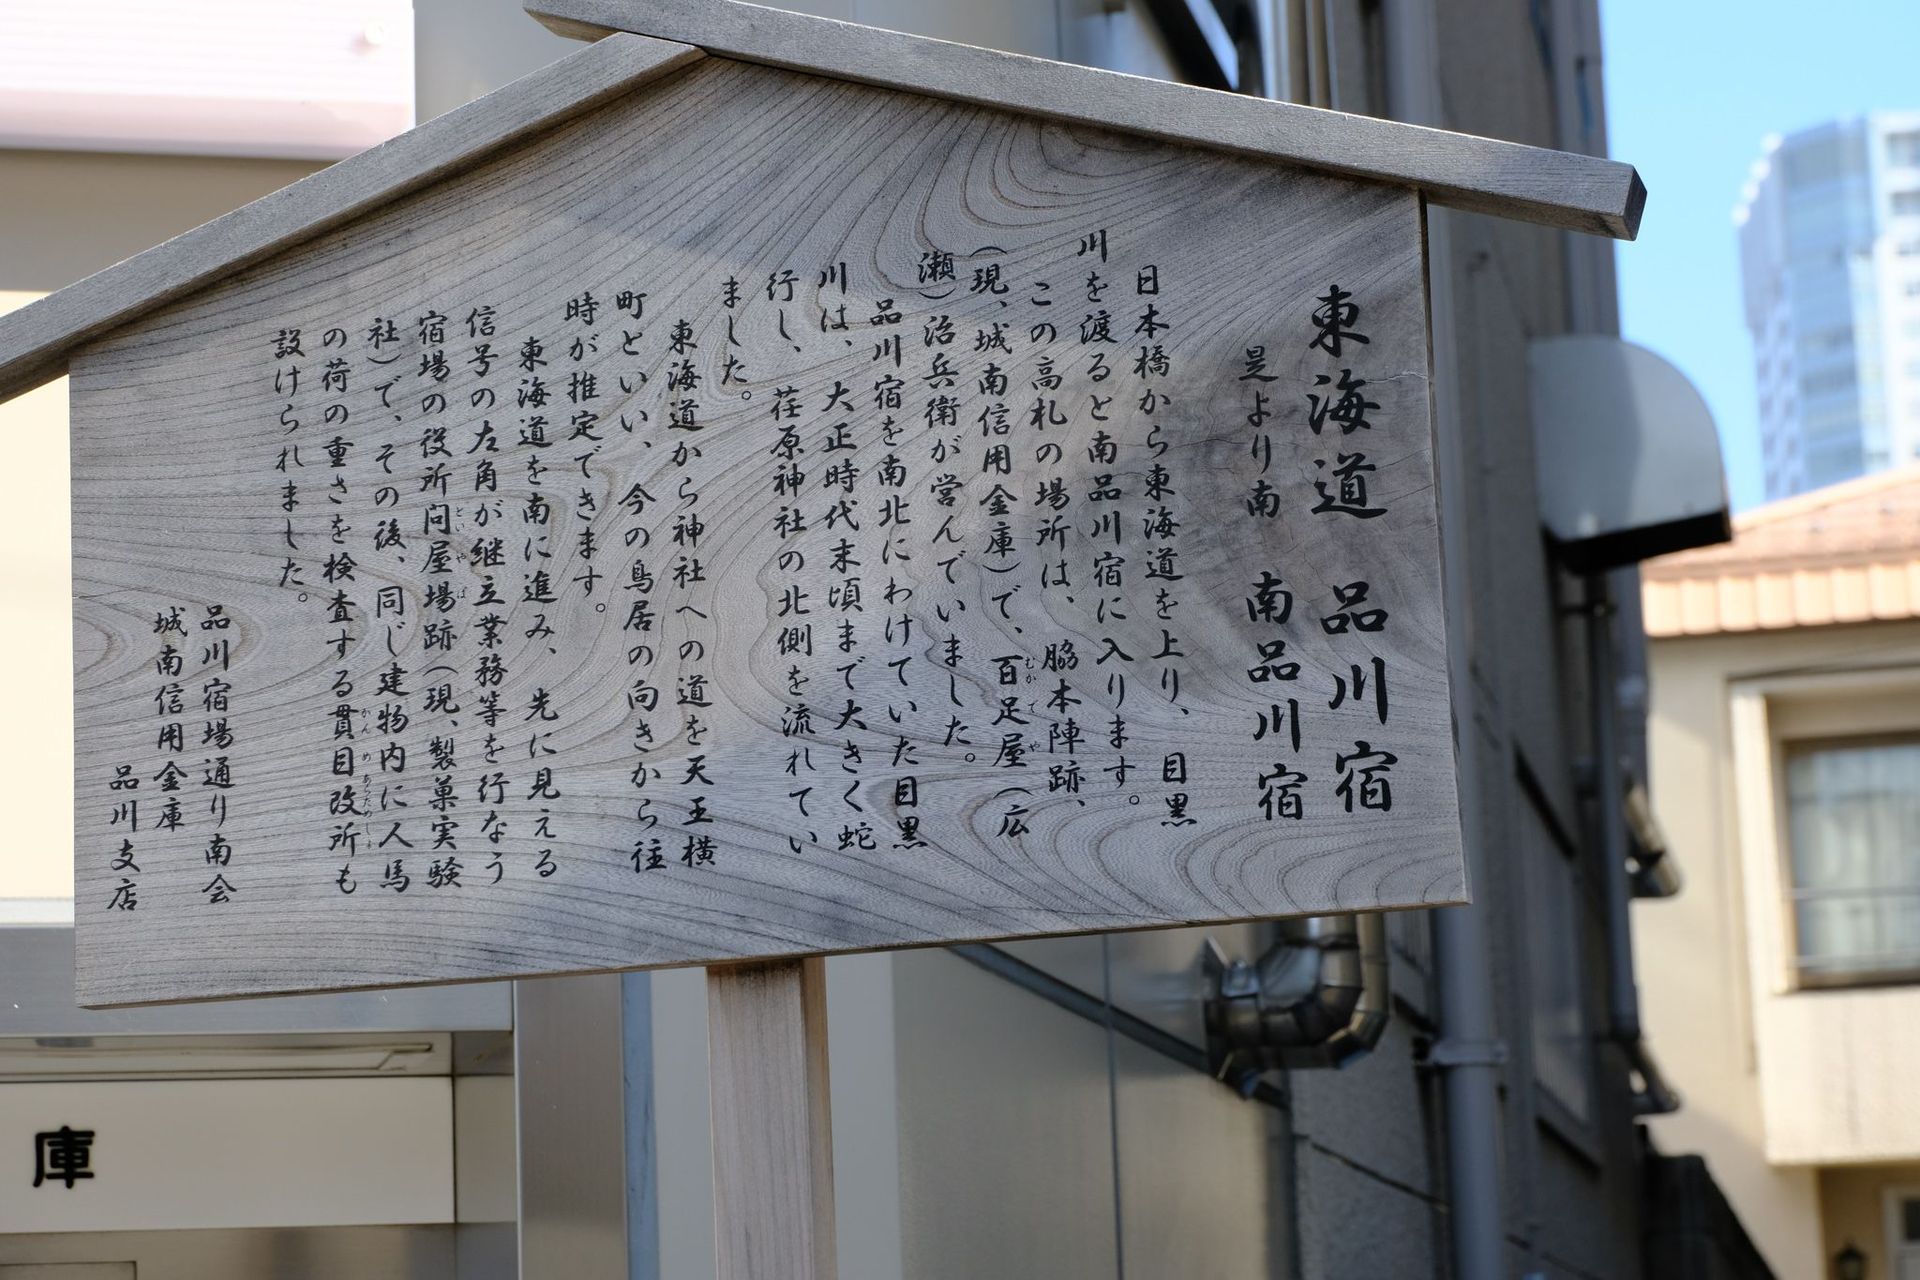 東海道 品川宿
是より南 南品川宿
日本橋から東海道を上り、目黒
川を渡ると南品川宿に入ります。
この高札の場所は、脇本陣跡、
(現、城南信用金庫)で、百足屋(広
むかでや
瀬)治兵衛が営んでいました。
品川宿を南北にわけていた目黒
川は、大正時代末頃まで大きく蛇
行し、荏原神社の北側を流れてい
ました。
東海道から神社への道を天王横
町といい、今の鳥居の向きから往
時が推定できます。
東海道を南に進み、先に見える
信号の左角が継立業務等を行なう
宿場の役所問屋場跡(現、製菓実験
といやば
社)で、その後、同じ建物内に人馬
の荷の重さを検査する貫目改所も
かんめあらためしょ
設けられました。
品川宿場通り南会
城南信用金庫
品川支店
庫